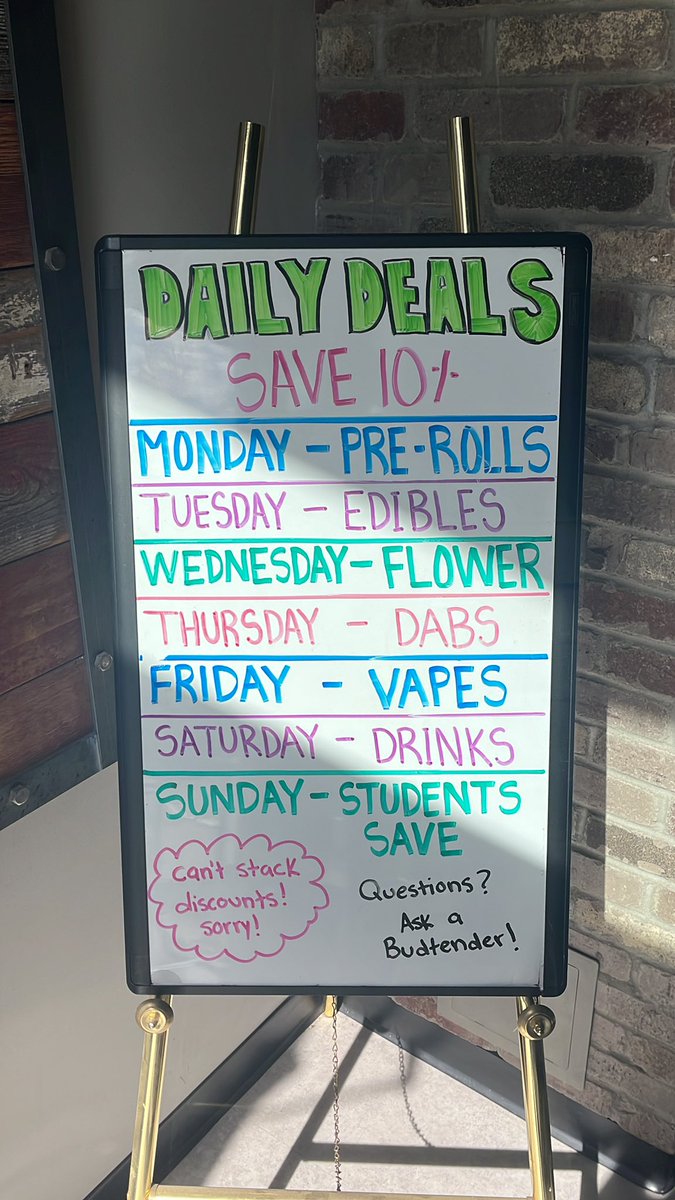 DAILY DEALS
SAVE 10%
MONDAY - PRE-ROLLS
TUESDAY - EDIBLES
WEDNESDAY - FLOWER
THURSDAY - DABS
FRIDAY - VAPES
SATURDAY - DRINKS
SUNDAY - STUDENTS
SAVE
can't stack
discounts!
sorry!
Questions?
Ask a
Budtender!